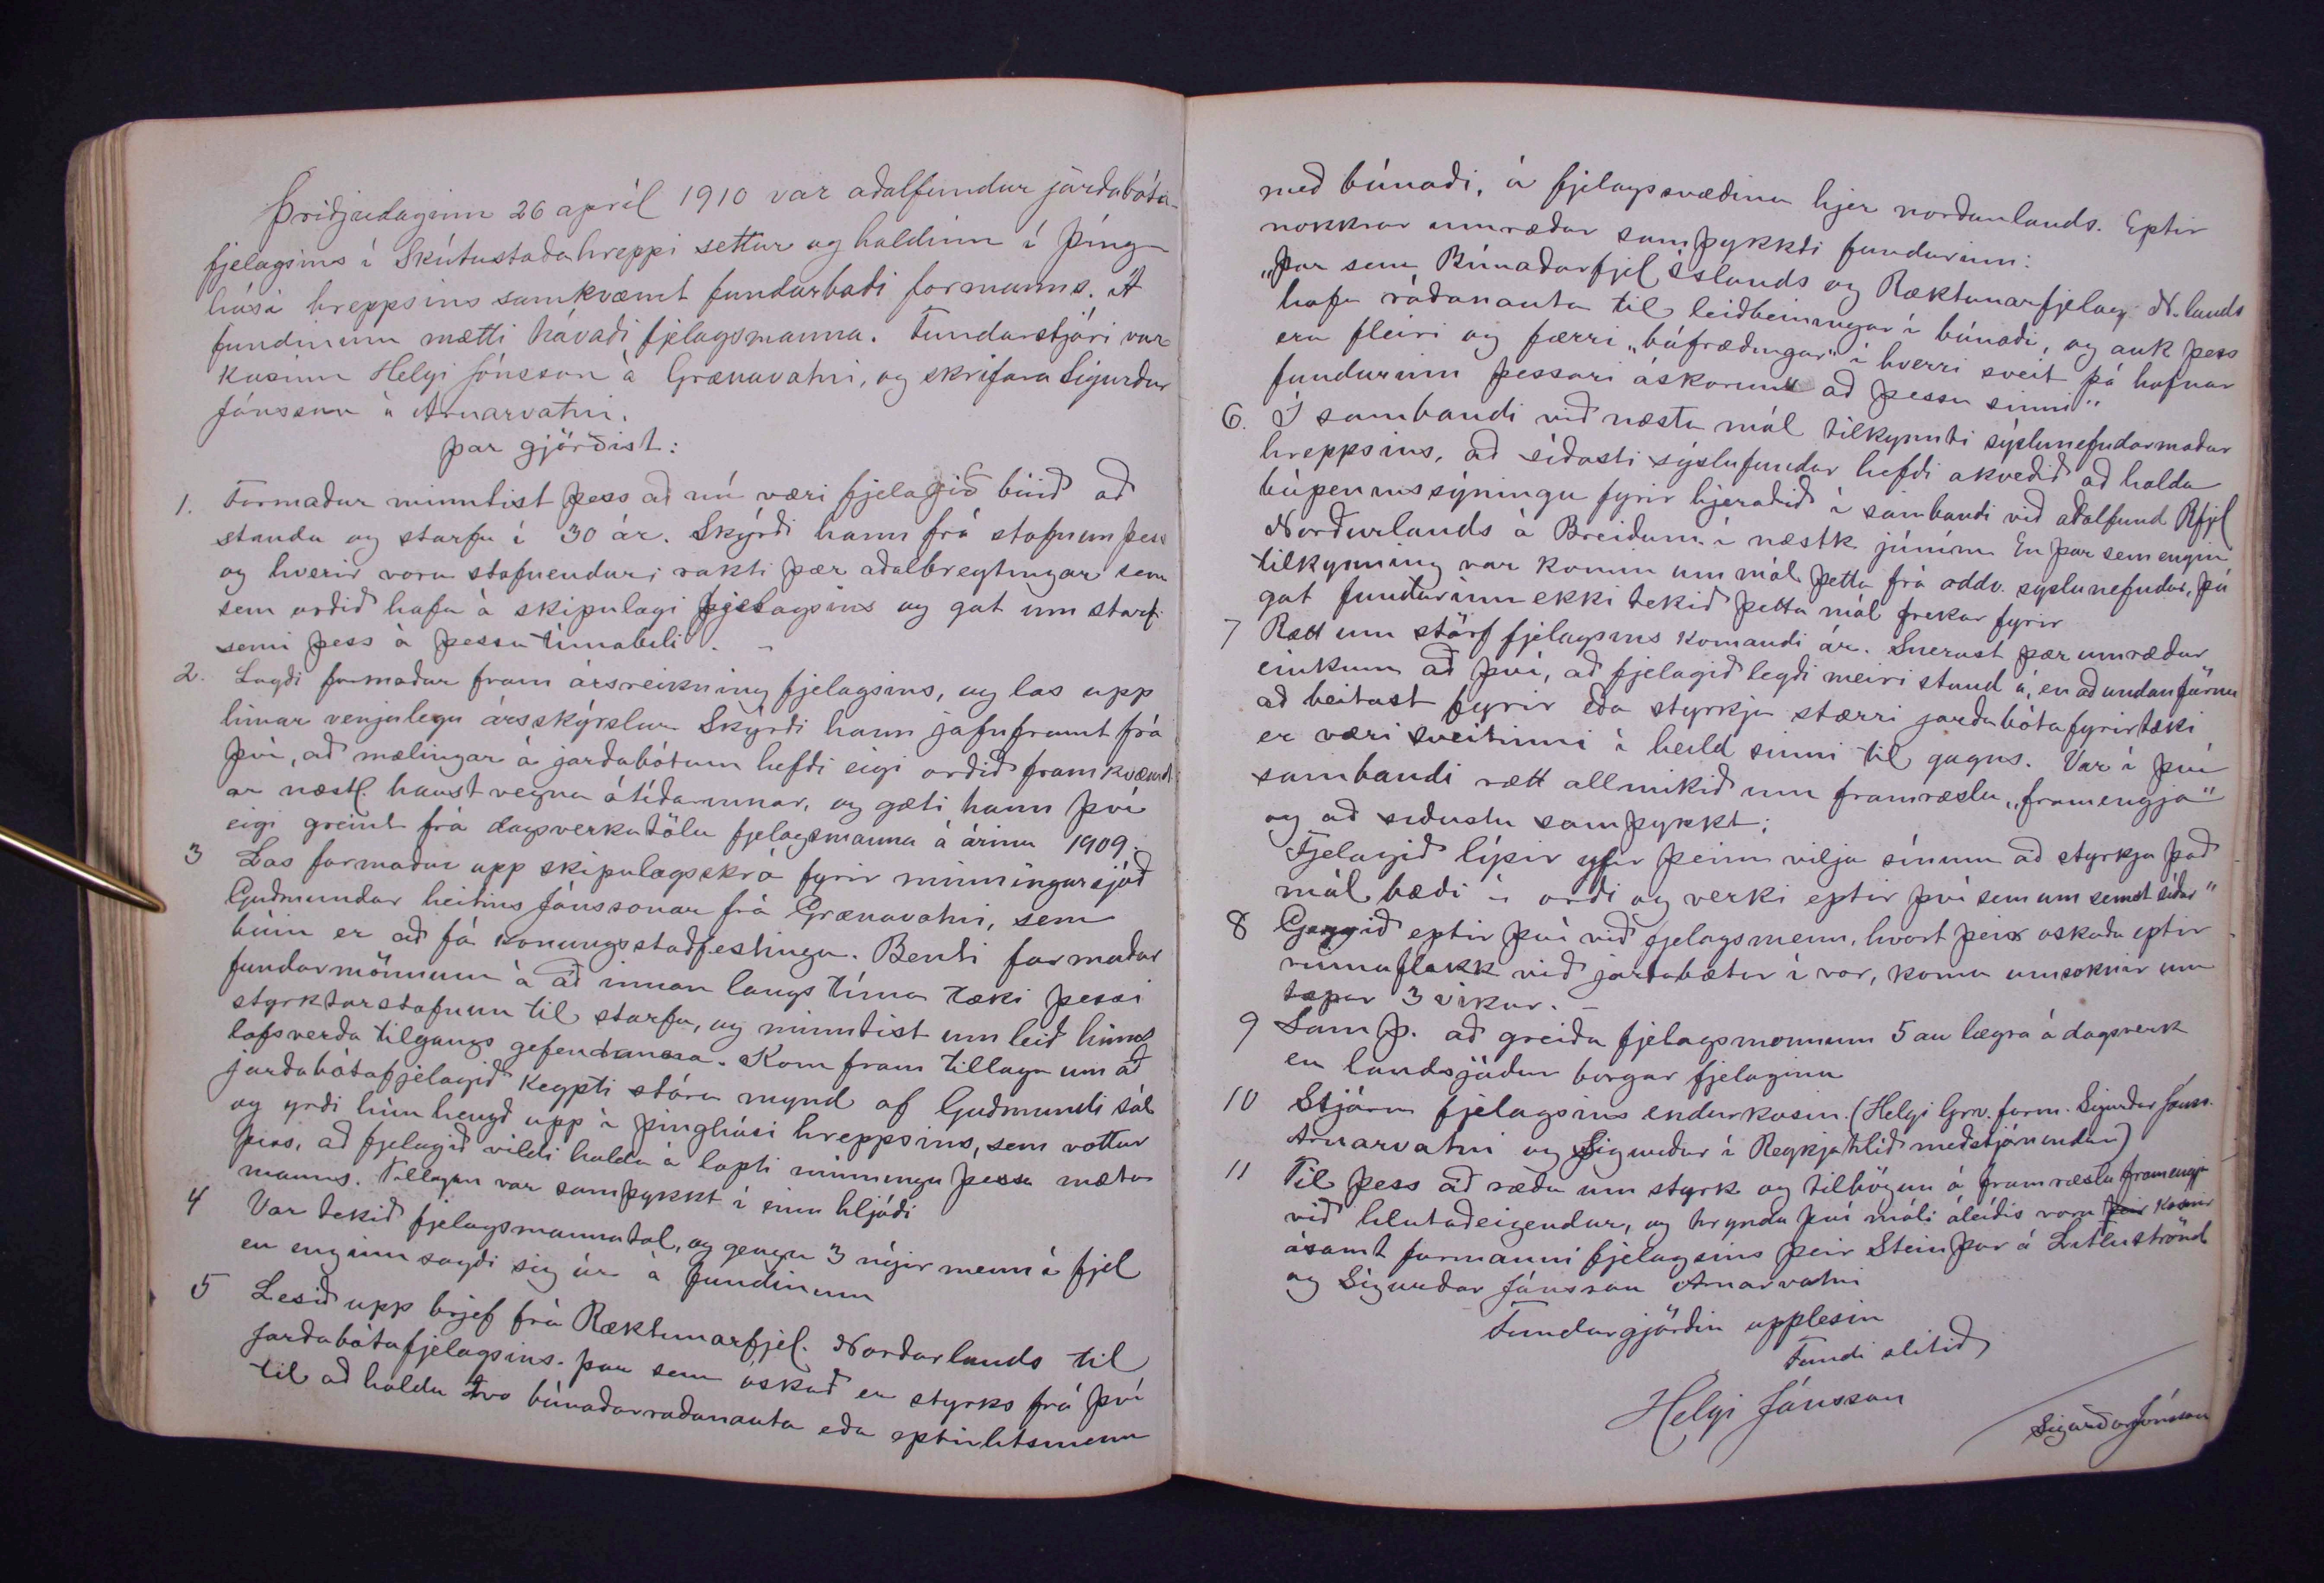 Þriðjudaginn 26 apríl 1910 var aðalfundur jarðabóta-
fjelagsins í Skútustaðahreppi settur og haldinn í þing-
húsi hreppsins samkvæmt fundarboði formanns. Á
fundinum mætti hávaði fjelagsmanna. Fundarstjóri var
kosinn Helgi Jónsson á Grænavatni, og skrifara Sigurður
Jónsson á Arnarvatni.
Þar gjörðist:
1. Formaður minntist þess að nú væri fjelagið búið að
standa og starfa í 30 ár. Skýrði hann frá stofnun þess
og hverir voru stofnendur; rakti þær aðalbreytingar sem
sem orðið hafa á skipulagi fjelagsins og gat um starf-
semi þess á þessu tímabili. -
2. Lagði formaður fram ársreikning fjelagsins, og las upp
hinar venjulegu ársskýrslur. Skýrði hann jafnframt frá
því, að mælingar á jarðabótum hefði eigi orðið framkvæmd-
ar næstl. haust vegna ótíðarinnar, og gæti hann því
eigi greint frá dagsverkatölu fjelagsmanna á árinu 1909.
3 Las formaður upp skipulagsskrá fyrir minningarsjóð
Guðmundar heitins Jónssonar frá Grænavatni, sem
búin er að fá konungsstaðfestingu. Benti formaður
fundarmönnum á að innan langs tíma tæki þessi
styrktarstofnun til starfa, og minntist um leið hins
lofsverða tilgangs gefendanna. Kom fram tillaga um að
jarðabótafjelagið keypti stóra mynd af Guðmundi sál
og yrði hún hengd upp í þinghúsi hreppsins, sem vottur
þess, að fjelagið vildi halda á lopti minningu þessa mæta
manns. Tillagan var samþykkt í einu hljóði
4 Var tekið fjelagsmannatal, og gengu 3 nýjir menn í fjel
en enginn sagði sig úr á fundinum
5 Lesið upp brjef frá Ræktunarfjel. Norðurlands til
Jarðabótafjelagsins. þar sem óskað er styrks frá því
til að halda tvo búnaðarráðanauta eða eptirlitsmenn
með búnaði, á fjelagssvæðinu hjer norðanlands. Eptir
nokkrar umræður samþykkti fundurinn:
„Þar sem Búnaðarfjel Íslands og Ræktunarfjelag N.lands
hafa ráðanauta til leiðbeiningar í búnaði, og auk þess
eru fleiri og færri „búfræðingar" í hverri sveit þá hafnar
fundurinn þessari áskorun að þessu sinni"
6. Í sambandi við næsta mál tilkynnti sýslunefndarmaður
hreppsins, að síðasti sýslufundur hefði ákveðið að halda
búpeningssýningu fyrir hjeraðið í sambandi við aðalfund Rfjel
Norðurlands á Breiðum. í næstk júním En þar sem engin
tilkynning var komin um mál þetta frá oddv. sýslunefndar, þá
gat fundurinn ekki tekið þetta mál frekar fyrir
7 Rætt um störf fjelagsins komandi ár. Snerust þær umræður
einkum að því, að fjelagið legði meiri stund á, en að undanförnu
að beitast fyrir eða styrkja stærri jarðabótafyrirtæki
er væri sveitinni í heild sinni til gagns. Var í því
sambandi rætt allmikið um framræslu „framengja"
og að síðustu samþykkt:
Fjelagið lýsir yfir þeim vilja sínum að styrkja það
mál bæði í orði og verki eptir því sem um semst síðar"
8 Gengið eptir því við fjelagsmenn, hvort þeir óskuðu eptir
vinnuflokk við jarðabætur í vor, komu umsóknir um
tæpar 3 vikur. -
9 Samþ. að greiða fjelagsmönnum 5 au lægra á dagsverk
en landsjóður borgar fjelaginu
10 Stjórn fjelagsins endurkosin. (Helgi Grv. form. Sigurður Jónss.
Arnarvatni og Sigurður í Reykjahlíð meðstjórnendur)
11 Til þess að ræða um styrk og tilhögun á framræslu framengja
við hlutaðeigendur, og hrynda því máli áleiðis voru þeir kosnir
ásamt formanni fjelagsins þeir Steinþór á Litluströnd
og Sigurður Jónsson Arnarvatni
Fundargjörðin upplesin
Fundi slitið
Helgi Jónsson
Sigurður Jónsson